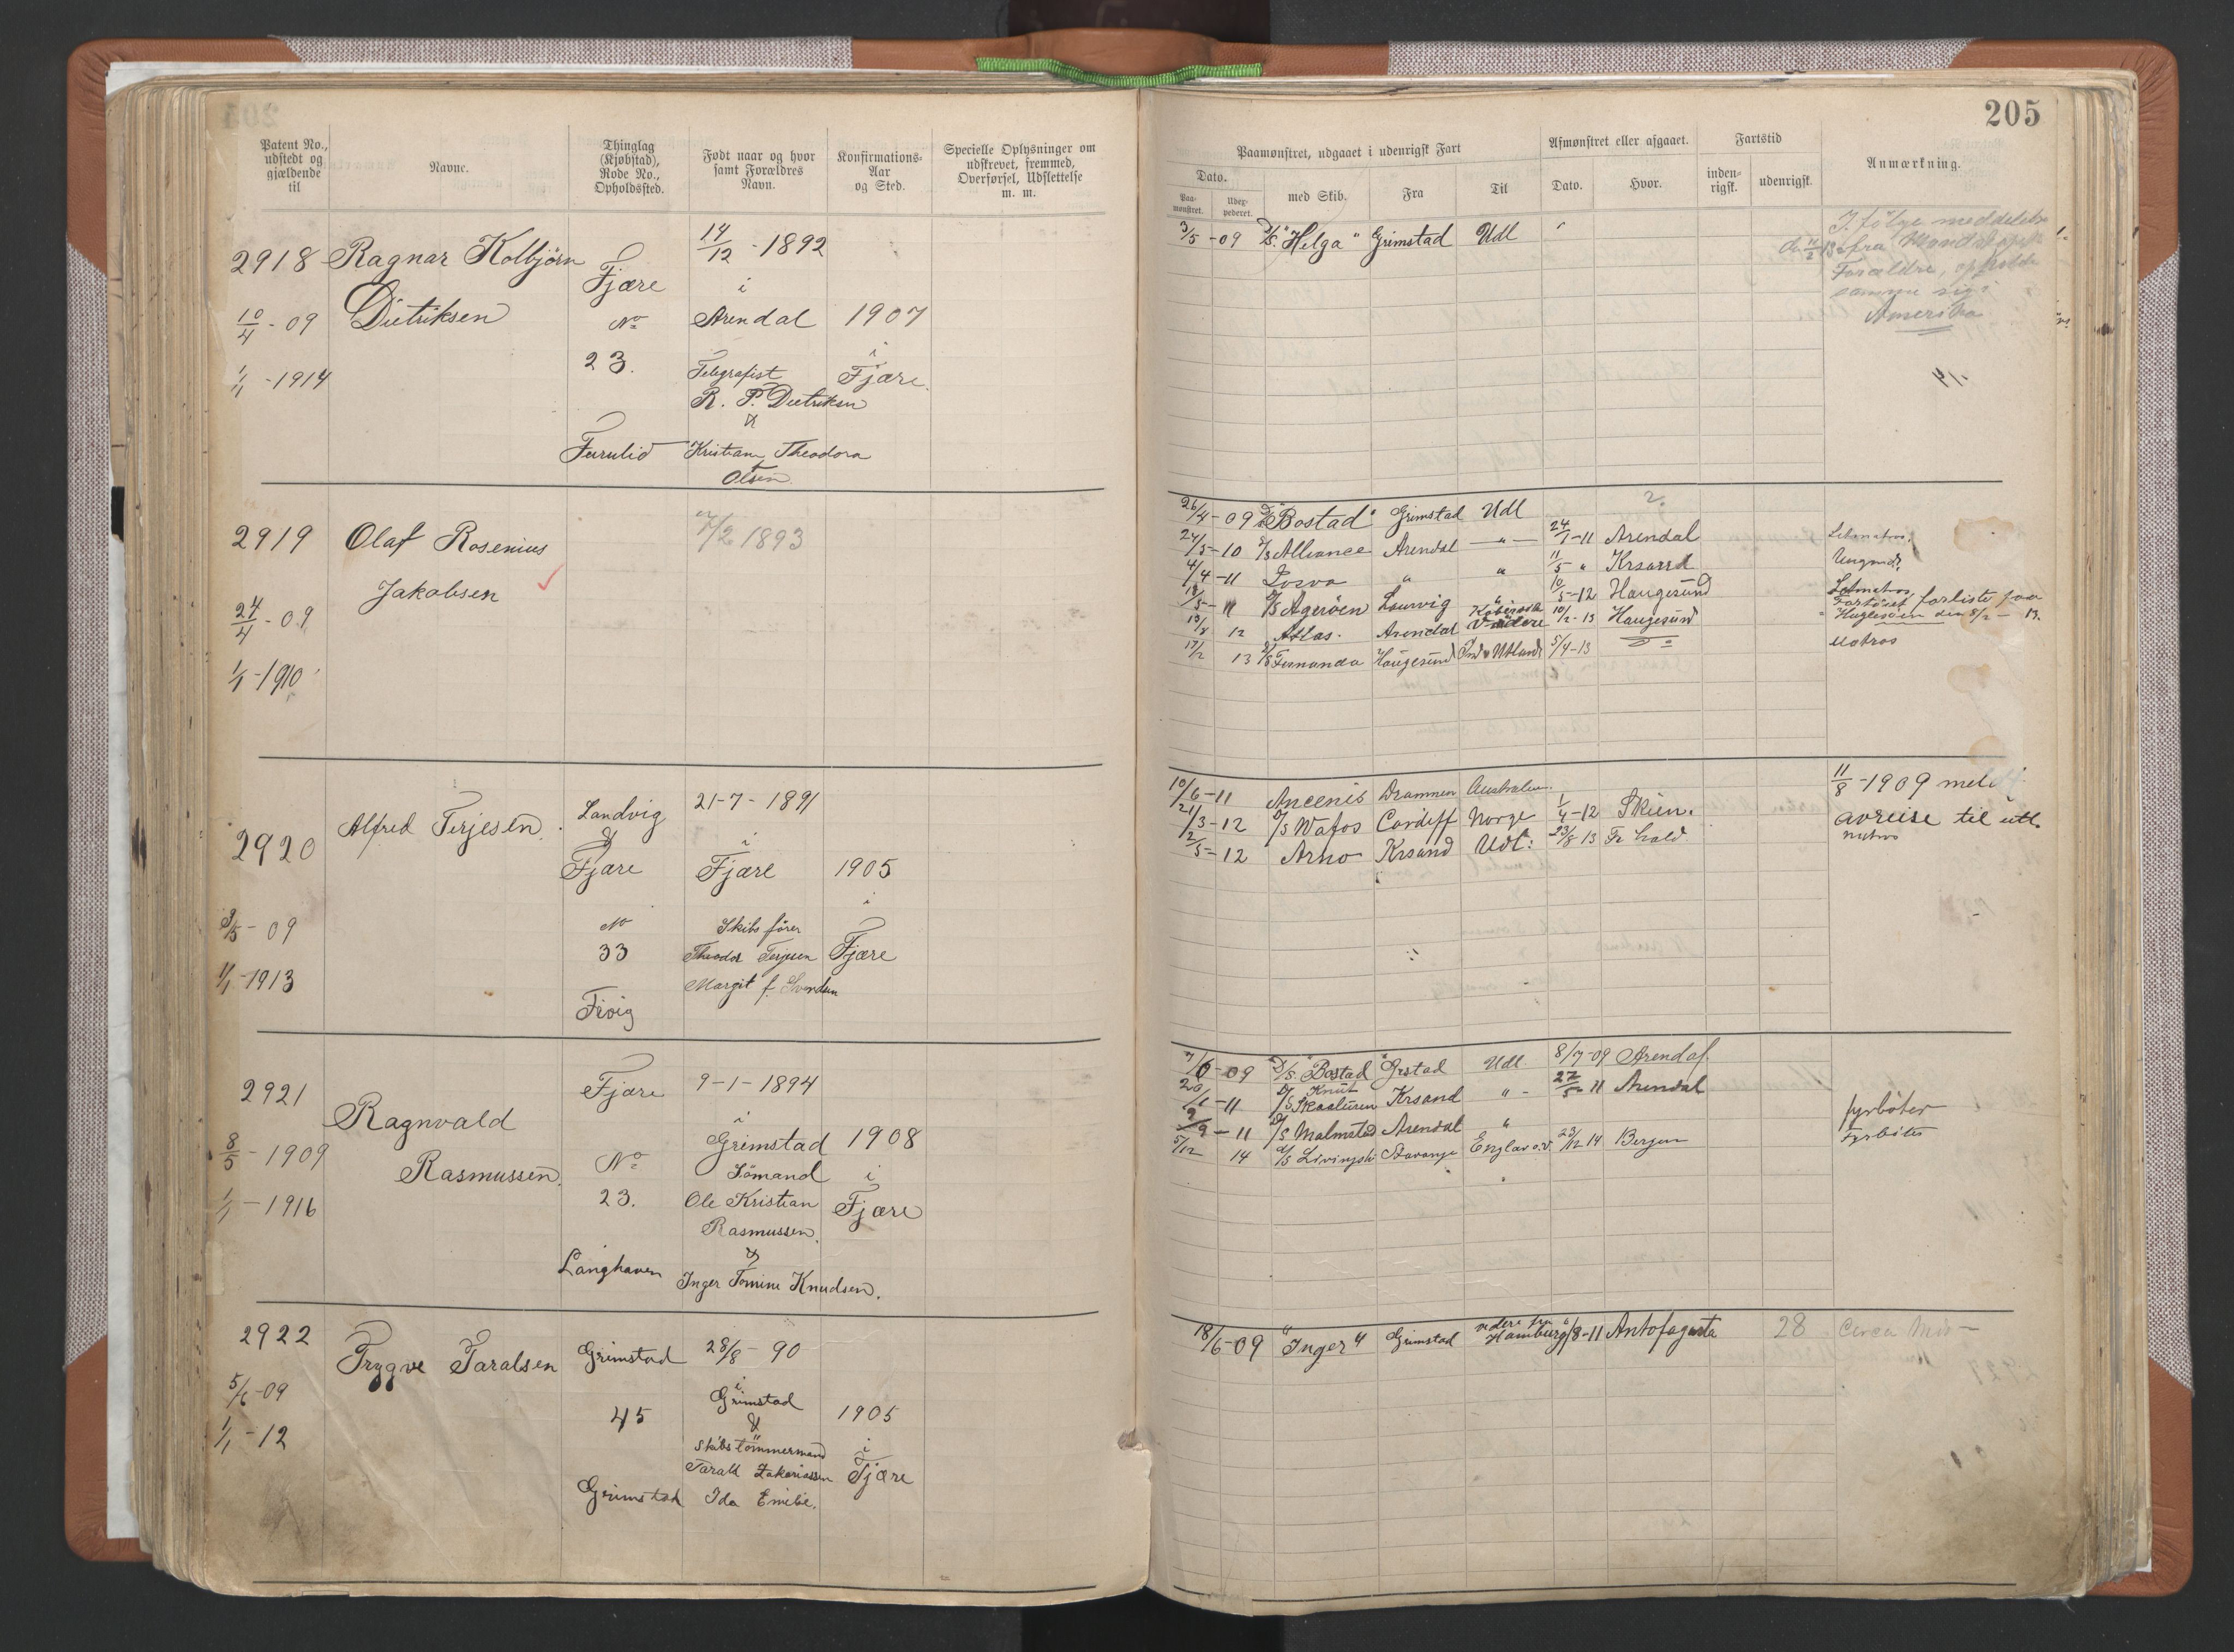 205
Patent No., udstedt og gjældende til
Navne.
Thinglag (Kjøbstad), Rode No., Opholdssted.
Født naar og hvor samt Forældres Navn.
Konfirmations-Aar og Sted.
Specielle Oplysninger om udskrevet, fremmed, Overførsel, Udslettelse m. m.
Paamønstret, udgaaet i udenrigsk Fart
Afmønstret eller afgaaet.
Fartstid
Anmærkning.
Dato.
Paa-mønstret.
Udex-pederet.
med Skib.
Fra
Til
Dato.
Hvor.
inden-rigsk.
udenrigsk.
2918 Ragnar Kolbjörn
Dietriksen
10/4 - 09
1/1 - 1914
Fjære
No
23.
Furulid
14/12 - 1892
i
Arendal
Telegrafist
R. P. Dietriksen
&
Kristiane Theodora
Olsen.
1907
i
Fjære.
3/5 - 09 D/S. "Helga" Grimstad Udl
Ifölge meddelelse
fra
Forældre, opholder
samme sig i
Amerika
2919 Olaf Rosenius
Jakobsen
24/4 - 09
1/1 - 1910
7/2 1893
26/4 - 09 D/S "Bostad" Grimstad Udl
24/5 - 10 D/S Alliance Arendal - " - 24/1 - 11 Arendal
4/4 - 11 " " 11/5 " Krsand
D/S Ageröen Laurvig " 10/5 - 12 Haugesund
12 Atlas. Arendal 10/2 - 13 Haugesund
forliste paa
17/2 13 D/S Fernanda Haugesund Ind & Utland 5/4 - 13 Do
Matros
2920 Alfred Terjesen.
3/5 - 09
1/1 - 1913
Landvig
&
Fjære
No
33
Fevig
21 - 7 - 1891
i
Fjære
Skibsfører
Theodor Terjesen
Margit f. Svendsen
1905
i
Fjære
10/6 - 11 Ancenis Drammen Australien.
21/3 - 12 D/S Wafos Cardiff Norge 1/4 - 12 Skien.
2/5 - 12 Arno Krsand Udl: 23/8 13 Fr.hald.
11/8 - 1909 meldt
avreise til utl.
2921 Ragnvald
Rasmussen.
8/5 - 1909
1/1 - 1916
Fjære
No
23.
Langhaven
9 - 1 - 1894
i
Grimstad
Sömand
Ole Kristian
Rasmussen.
&
Inger Tomine Knudsen.
1908
i
Fjære
7/6 - 09 D/S. "Bostad" Grstad Udl 8/7 - 09 Arendal.
20/1 - 11 D/S Knut Skaaluren Krsand " - 27/5 - 11 Arendal
11 D/S Malmstad Arendal "
fyrböter
5/12 14 D/S Stavanger England 23/12 14 Bergen
Fyrböter
2922 Trygve Taralsen
5/6 - 09
1/1 - 12
Grimstad
45
Grimstad
28/8 - 90
i
Grimstad
&
Skibstömmermand
Tarald Zakariassen
Ida Emilie.
1905
i
Fjære
18/6 - 09 "Inger" Grimstad videre fra Hamburg /8 - 11 Antofagasta 28 Circa